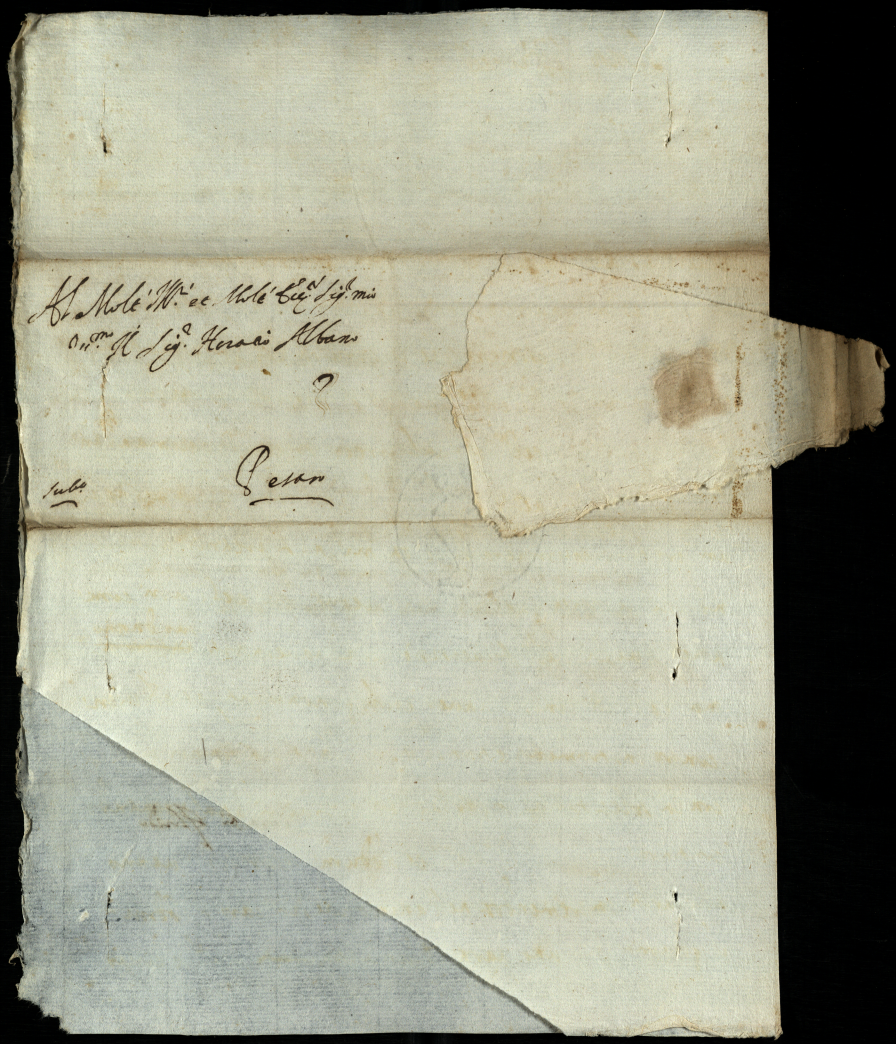 Al Molt' Ill.e et Molt' Ecc.te Sig.r mio
Oss.mo Il Sig.r Horatio Albano
Pesaro
subo